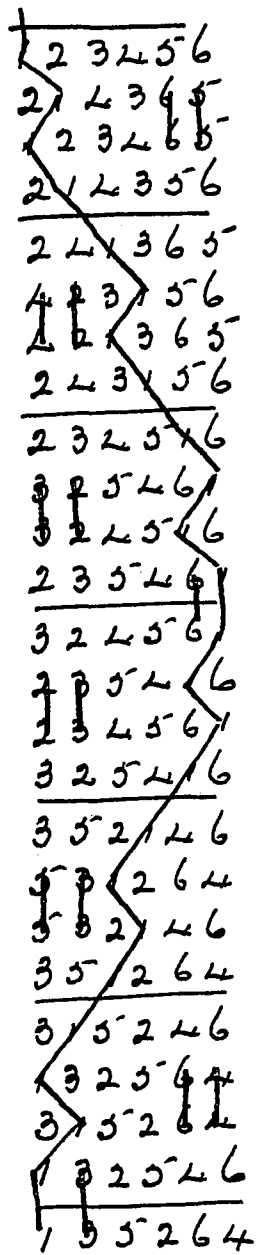 1 2 3 4 5 6
2 1 4 3 6 5
1 2 3 4 6 5
2 1 4 3 5 6
2 4 1 3 6 5
4 2 3 1 5 6
4 2 1 3 6 5
2 4 3 1 5 6
2 3 4 5 1 6
3 2 5 4 6 1
3 2 4 5 1 6
2 3 5 4 6 1
3 2 4 5 6 1
2 3 5 4 1 6
2 3 4 5 6 1
3 2 5 4 1 6
3 5 2 1 4 6
5 3 1 2 6 4
5 3 2 1 4 6
3 5 1 2 6 4
3 1 5 2 4 6
1 3 2 5 6 4
3 1 5 2 6 4
1 3 2 5 4 6
1 3 5 2 6 4